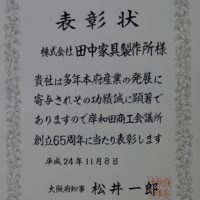 表彰状
株式会社 田中家具製作所様
貴社は多年本府産業の発展に
寄与されその功績誠に顕著で
ありますので岸和田商工会議所
創立65周年に当たり表彰します
平成24年11月8日
大阪府知事 松井一郎